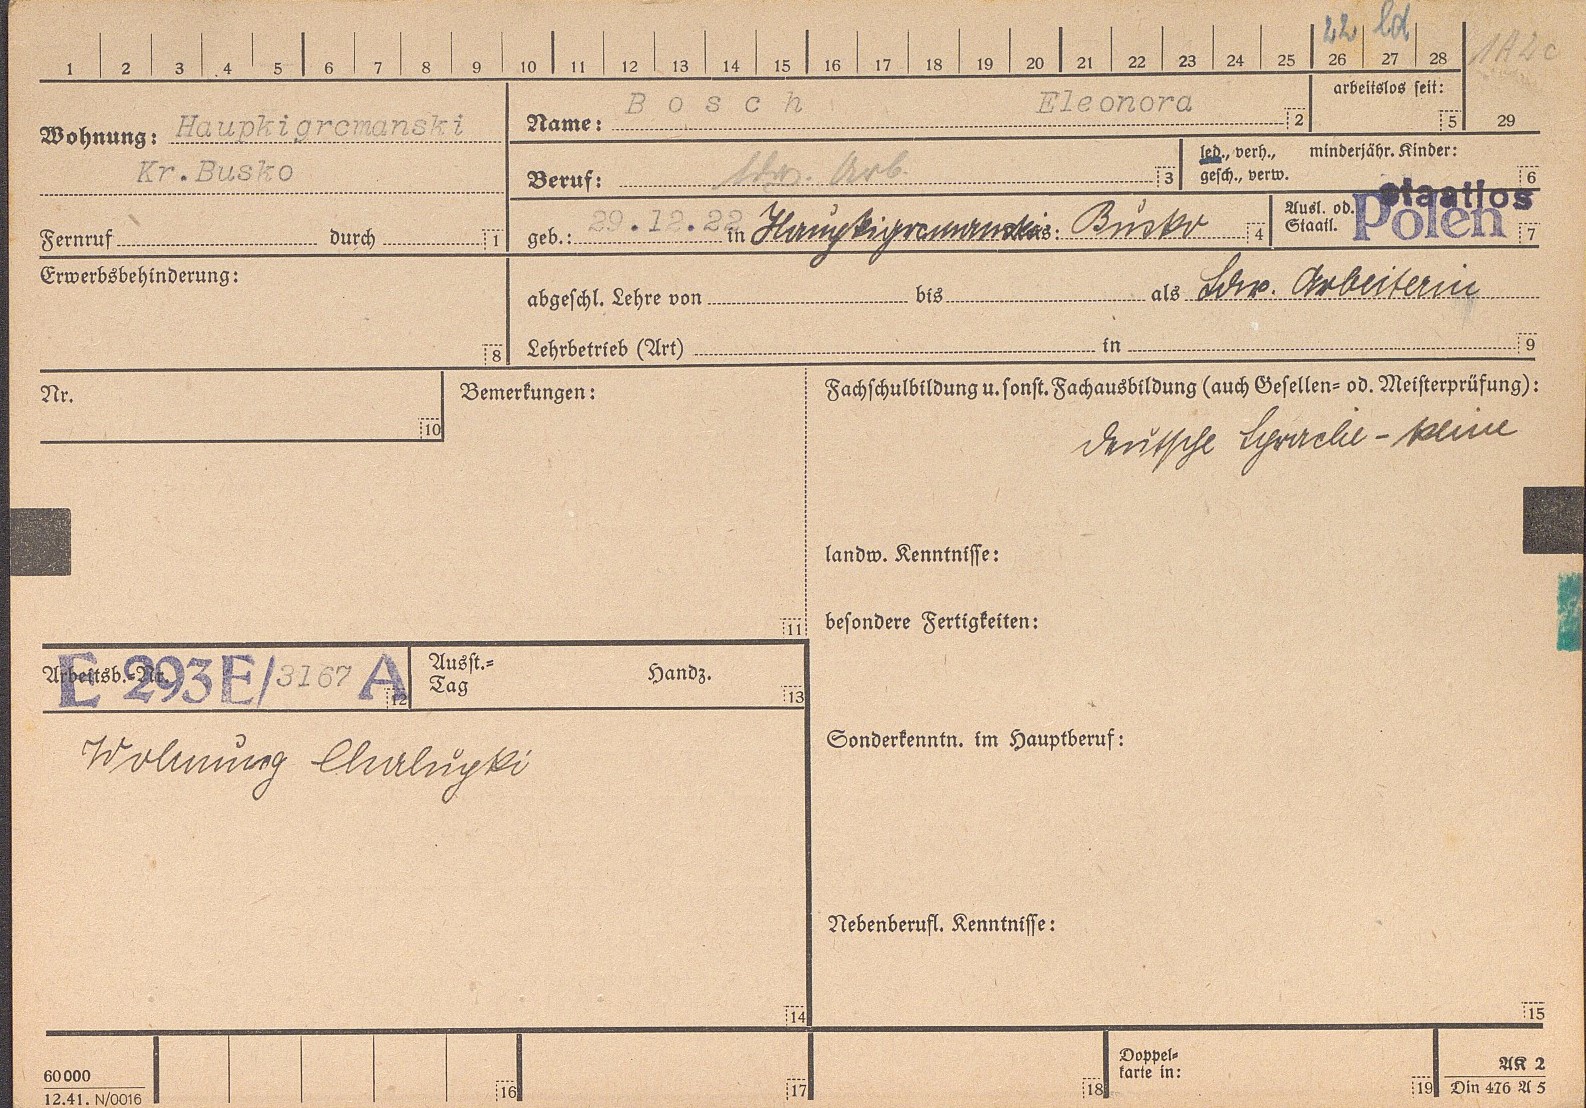 22 ld
1 2 3 4 5 6 7 8 9 10 11 12 13 14 15 16 17 18 19 20 21 22 23 24 25 26 27 28
1A2c
29
Wohnung: Haupkigrcmanski
Kr.Busko
Fernruf durch 1
Name: Bosch Eleonora 2
arbeitslos seit:
5
Beruf: ldw. Arb. 3
led., verh., minderjähr. Kinder:
gesch., verw. 6
geb.: 29.12.22 in Haupkigrcmanski Kreis: Busko 4
Ausl. od.
Staatl. staatlos
Polen 7
Erwerbsbehinderung:
8
abgeschl. Lehre von bis als Ldw. Arbeiterin
Lehrbetrieb (Art) in 9
Nr.
10
Bemerkungen:
11
Fachschulbildung u. sonst. Fachausbildung (auch Gesellen- od. Meisterprüfung):
deutsche Sprache - keine
landw. Kenntnisse:
besondere Fertigkeiten:
Sonderkenntn. im Hauptberuf:
Nebenberufl. Kenntnisse:
15
Arbeitsb.-Nr. E 293E/3167 A 12
Ausst.- Handz.
Tag 13
Wohnung Chalupki
14
60000
12.41. N/0016
16 17 18
Doppel-
karte in:
19
AK 2
Din 476 A 5